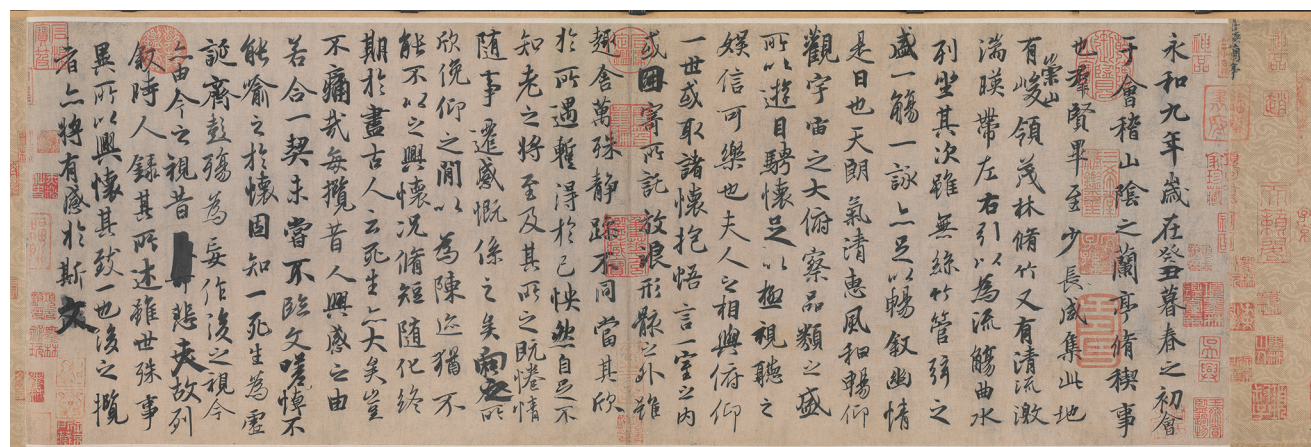 永和九年歲在癸丑暮春之初會
于會稽山陰之蘭亭脩稧事
也羣賢畢至少長咸集此地
有崇山峻領茂林脩竹又有清流激
湍暎帶左右引以為流觴曲水
列坐其次雖無絲竹管弦之
盛一觴一詠亦足以暢敘幽情
是日也天朗氣清惠風和暢仰
觀宇宙之大俯察品類之盛
所以遊目騁懷足以極視聽之
娛信可樂也夫人之相與俯仰
一世或取諸懷抱悟言一室之內
或因寄所託放浪形骸之外雖
趣舍萬殊静躁不同當其欣
於所遇蹔得於己怏然自足不
知老之將至及其所之既惓情
隨事遷感慨係之矣向之所
欣俛仰之閒以為陳迹猶不
能不以之興懷況脩短隨化終
期於盡古人云死生亦大矣豈
不痛哉每攬昔人興感之由
若合一契未嘗不臨文嗟悼不
能喻之於懷固知一死生為虛
誕齊彭殤為妄作後之視今
亦由今之視昔悲夫故列
敘時人錄其所述雖世殊事
異所以興懷其致一也後之攬
者亦將有感於斯文